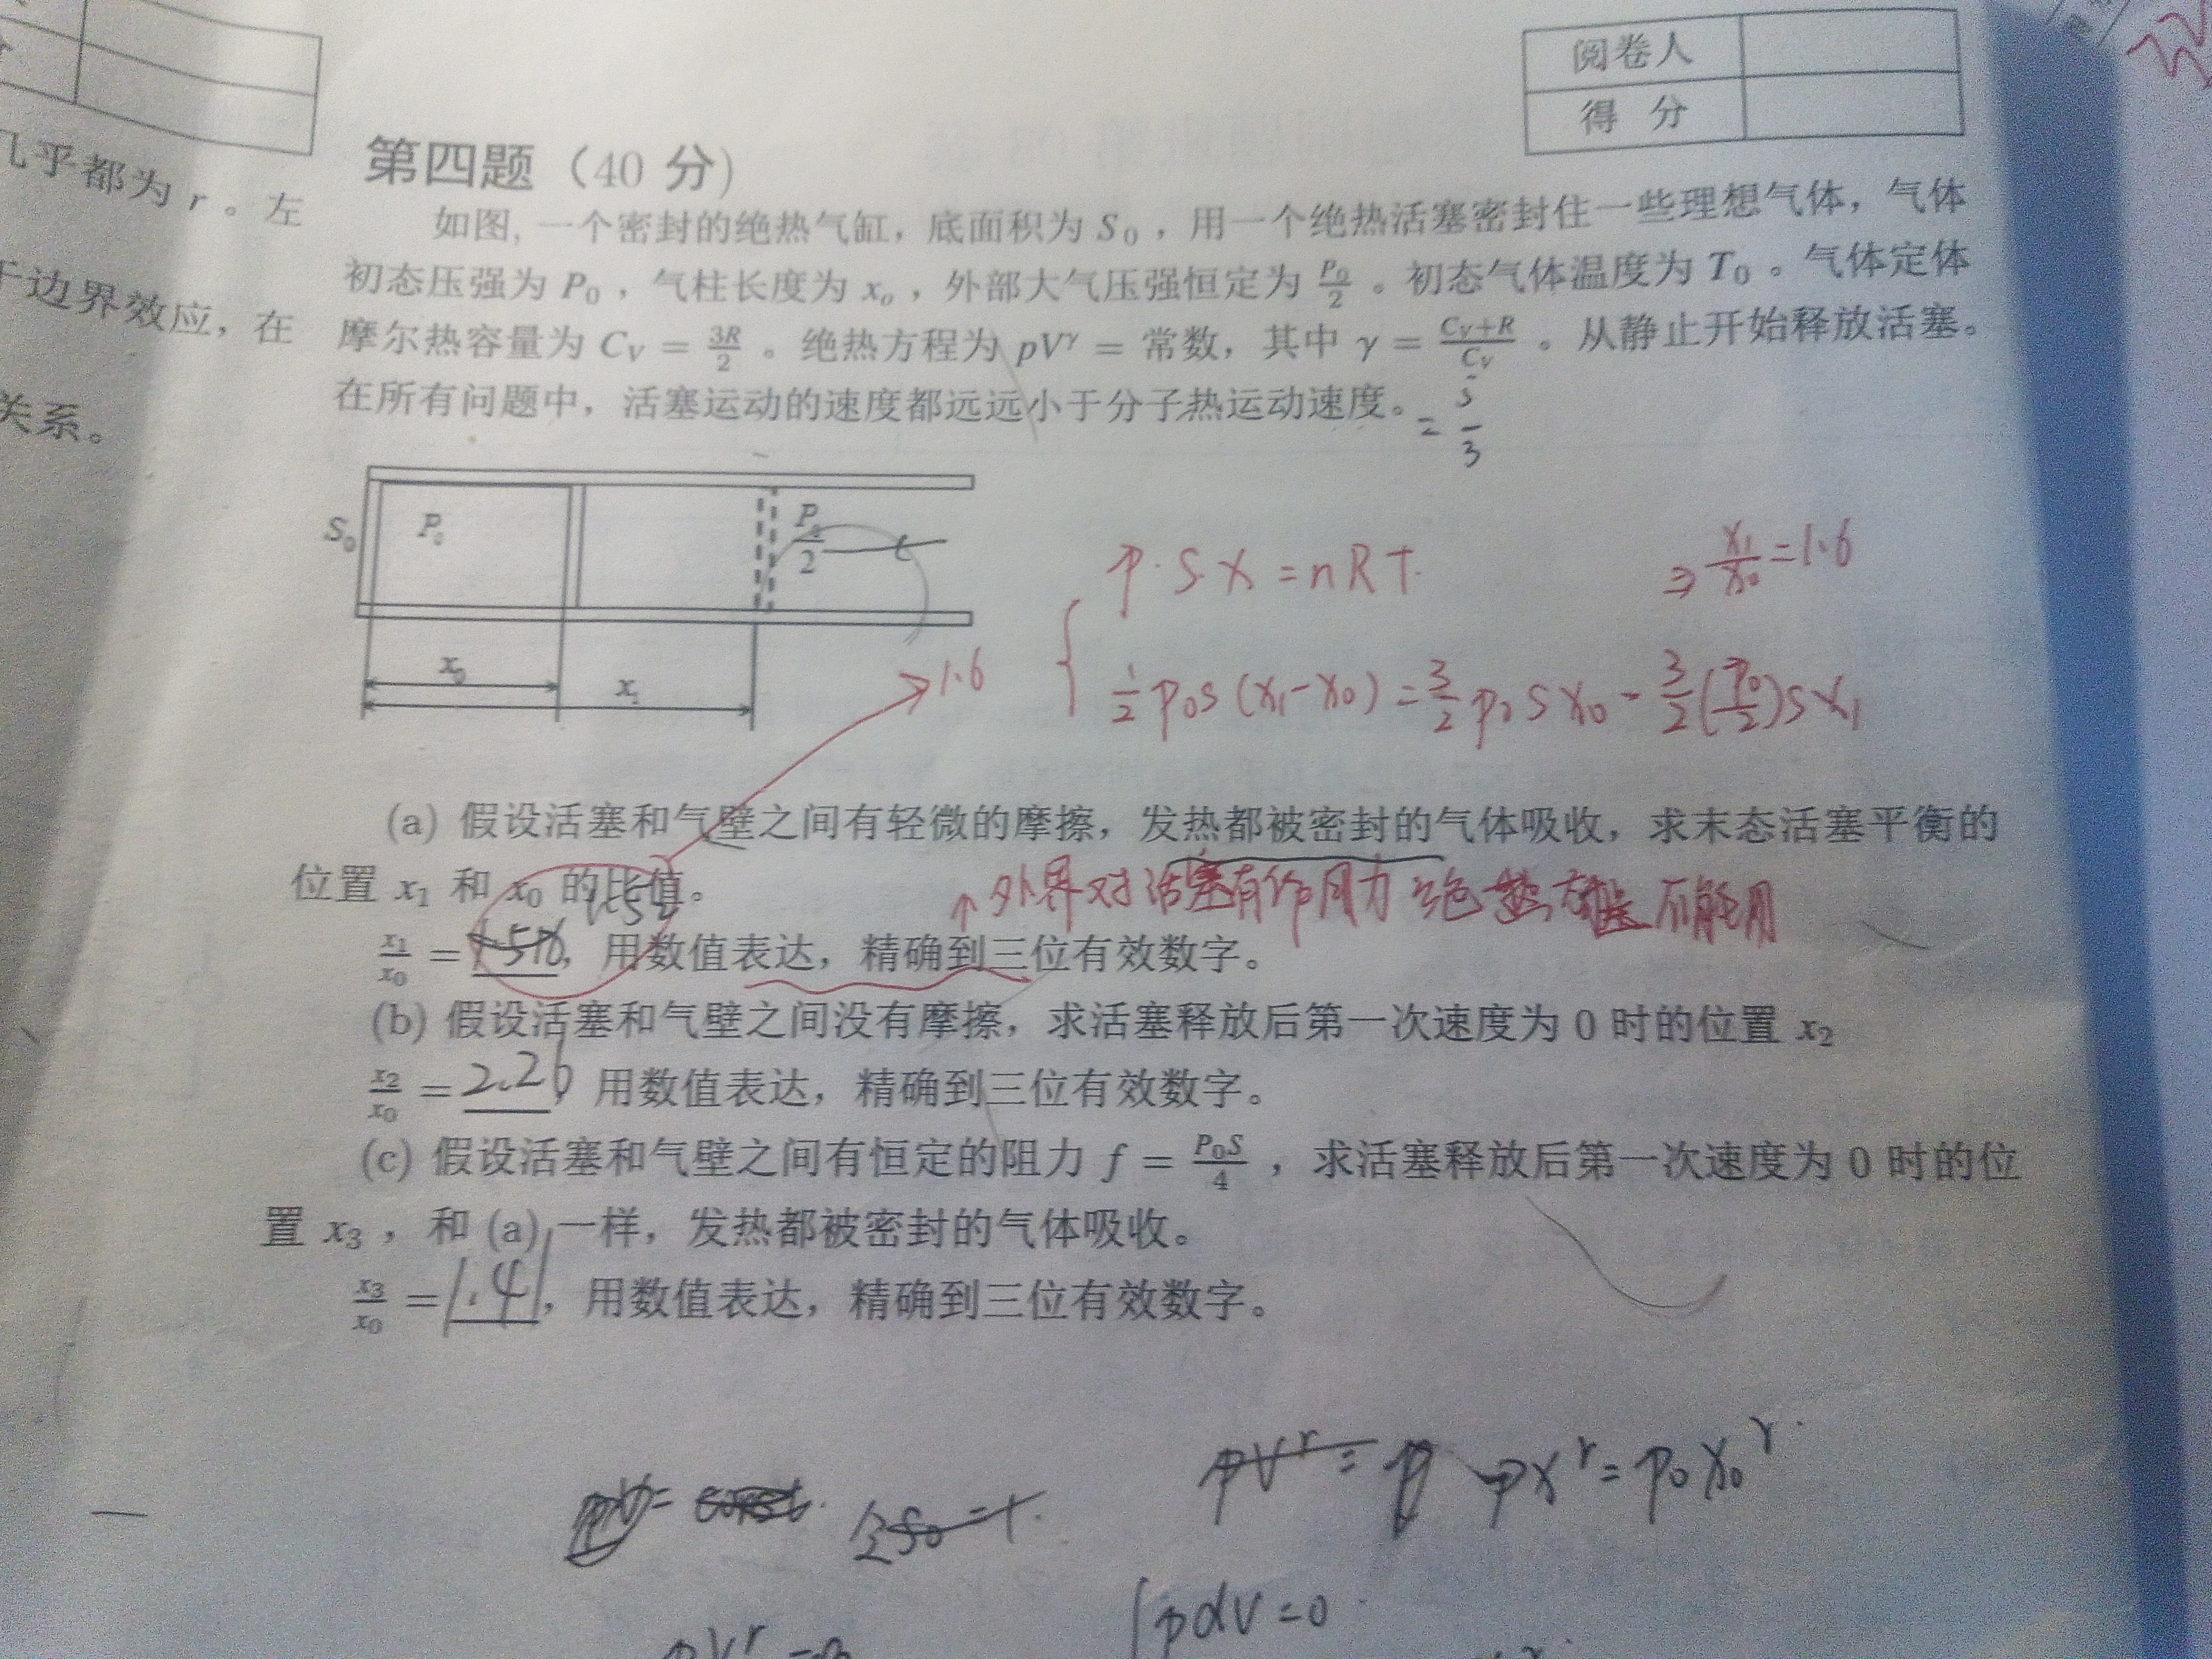 阅卷人
得 分
几乎都为 r 。左
于边界效应，在
关系。
第四题（40 分）
如图, 一个密封的绝热气缸，底面积为 S₀ ，用一个绝热活塞密封住一些理想气体，气体
初态压强为 P₀ ，气柱长度为 xₒ ，外部大气压强恒定为 P₀/2 。初态气体温度为 T₀ 。气体定体
摩尔热容量为 C_V = 3R/2 。绝热方程为 pV^γ = 常数，其中 γ = (C_V+R)/C_V 。从静止开始释放活塞。
在所有问题中，活塞运动的速度都远远小于分子热运动速度。
= 5/3
S₀ P₀ P₀/2
x₀
x₁
p·S X = n R T.
⇒ x₁/x₀ = 1.6
1.6
½ p₀s (x₁-x₀) = 3/2 p₀ s x₀ - 3/2 (p₀/2) s x₁
(a) 假设活塞和气壁之间有轻微的摩擦，发热都被密封的气体吸收，求末态活塞平衡的
位置 x₁ 和 x₀ 的比值。
↑外界对活塞有作用力 绝热方程不能用
1.52
x₁/x₀ = 1.516, 用数值表达，精确到三位有效数字。
(b) 假设活塞和气壁之间没有摩擦，求活塞释放后第一次速度为 0 时的位置 x₂
x₂/x₀ = 2.26 用数值表达，精确到三位有效数字。
(c) 假设活塞和气壁之间有恒定的阻力 f = P₀S/4 ，求活塞释放后第一次速度为 0 时的位
置 x₃ ，和 (a) 一样，发热都被密封的气体吸收。
x₃/x₀ = 1.41, 用数值表达，精确到三位有效数字。
pV^r = p px^r = p₀ x₀^r.
pV = const.
∫pdV = 0